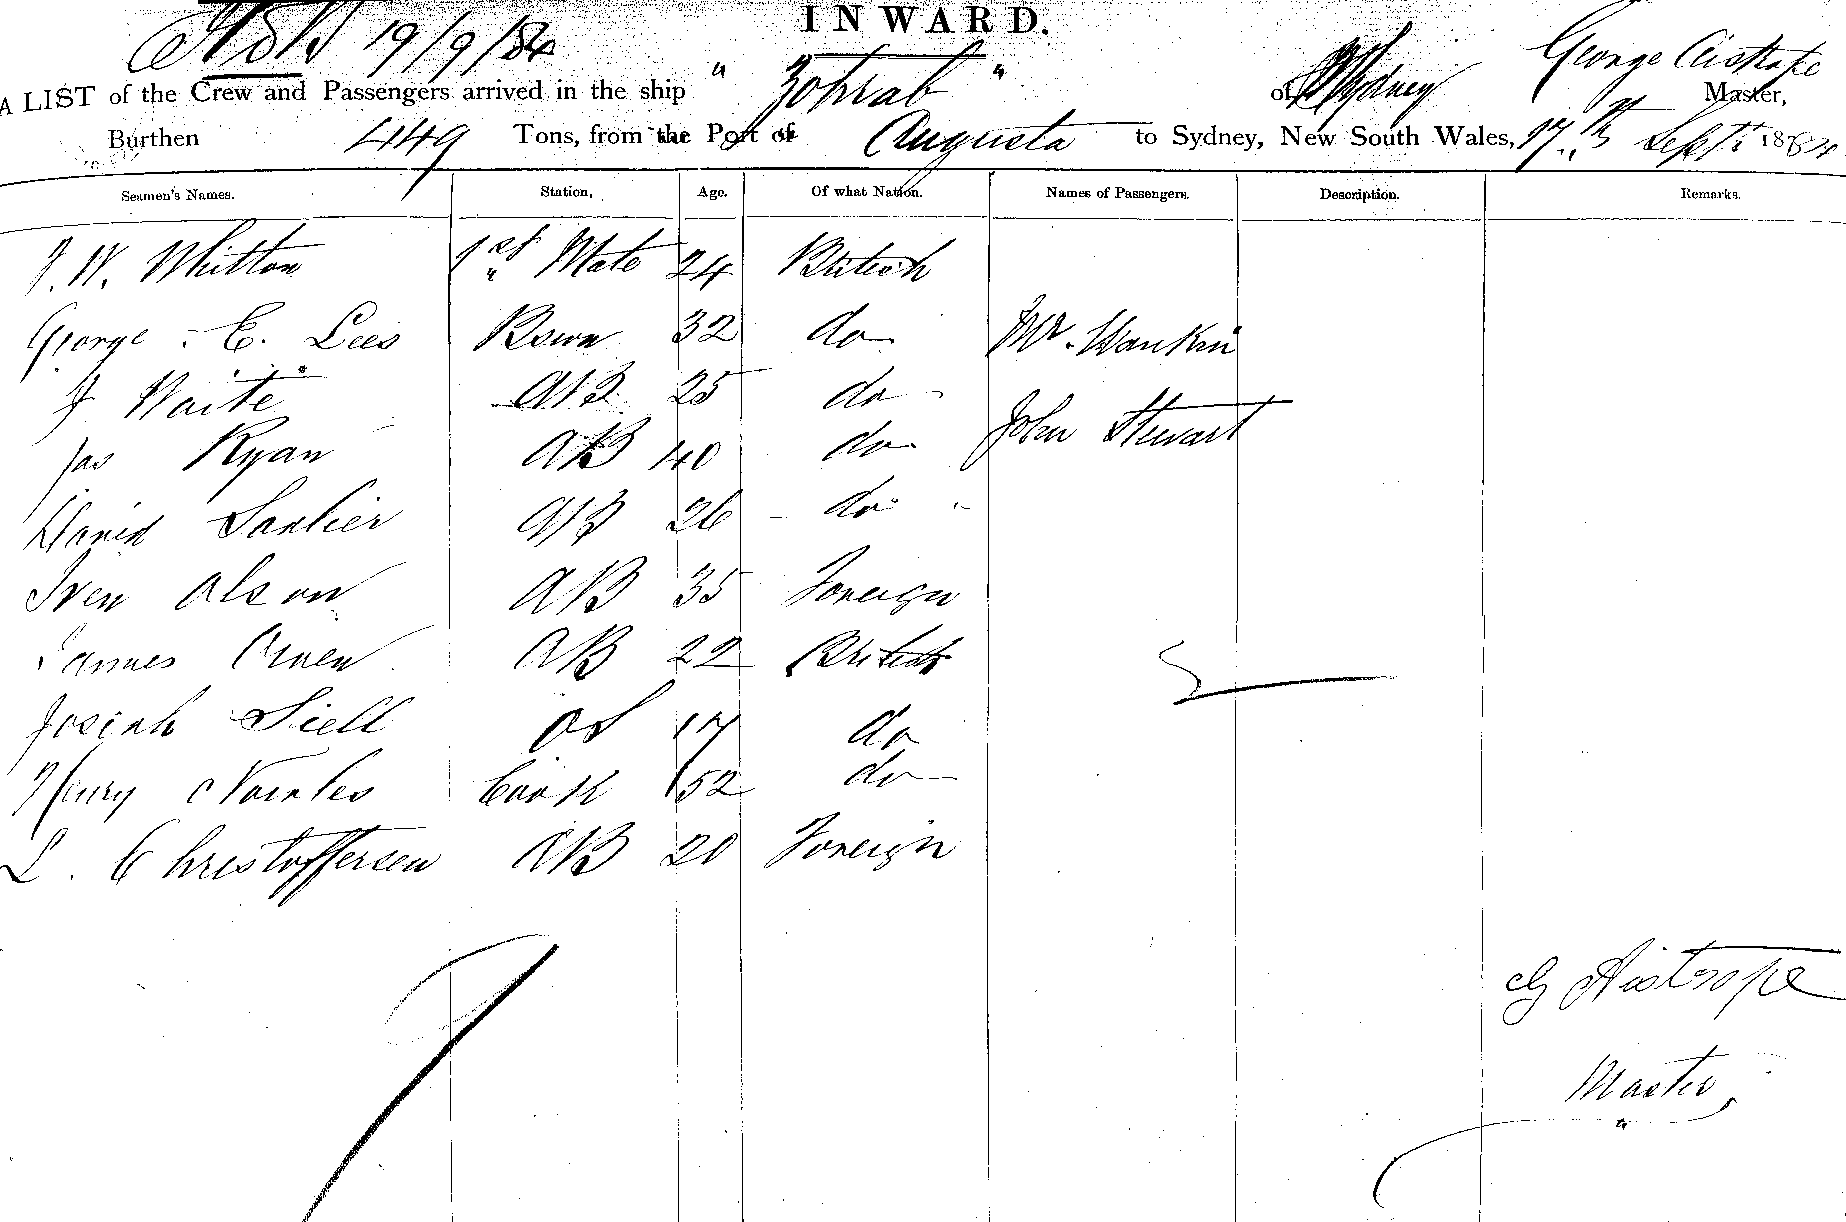 19/9/84
INWARD.
A LIST of the Crew and Passengers arrived in the ship "Zohrab" of Sydney George Master,
Burthen 449 Tons, from the Port of Augusta to Sydney, New South Wales, 17th Sept 1884
Seamen's Names. Station, Age. Of what Nation. Names of Passengers. Description. Remarks.
J. W. Whitton 1st Mate 24 British
George E. Lees Bswn 32 do Mr.
J Waite AB 25 do John Stewart
Jas Ryan AB 40 do
David AB 26 do
Iven Olson AB 35 Foreign
James Owen AB 22 British
Josiah OS 17 do
Henry Cook 52 do
L. Christoffersen AB 20 Foreign
G Aistrope
Master